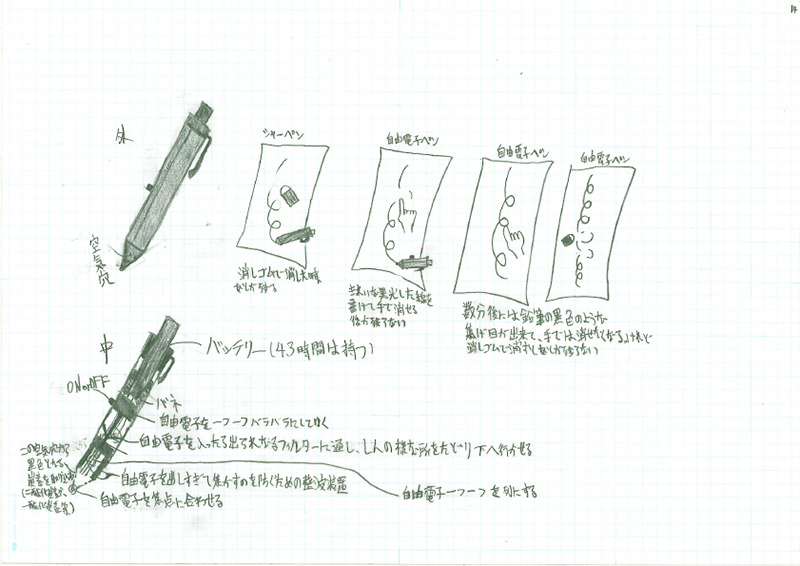 14
外
空気穴
シャーペン
消しゴムで消した時
あとが残る
自由電子ペン
黒光した線を
書けて手で消せる
後が残らない
自由電子ペン
自由電子ペン
数分後には鉛筆の黒色のような
焦げ目が出来て、手では消せなくなるけれど
消しゴムで消すとあとが残らない
中
バッテリー(43時間は持つ)
ON OFF
バネ
自由電子を一つ一つバラバラにしてゆく
自由電子を入ったら出られなくなるフィルターに通し、下へ行かせる
この空気穴から
黒色となる
炭素を取り込む
(二酸化炭素、
一酸化炭素等)
自由電子を出しすぎて焦がすのを防ぐための整波装置
自由電子を焦点に合わせる
自由電子一つ一つを列にする